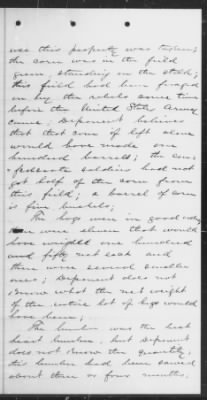 use this property was taken;
the corn was in the field
green, standing on the stalk;
this field had been foraged
on by the rebels some time
before the United States Army
came; Deponent believes
that that corn if left alone
would have made one
hundred barrels; the con-
federate soldiers had not
got half of the corn from
this field; a barrel of corn
is five bushels;
The hogs were in good order
there were eleven that would
have weighed one hundred
and fifty net each and
there were several smaller
ones; Deponent does not
know what the net weight
of the entire lot of hogs would
have been;
The lumber was the best
heart lumber, but Deponent
does not know the quantity;
this lumber had been sawed
about three or four months.